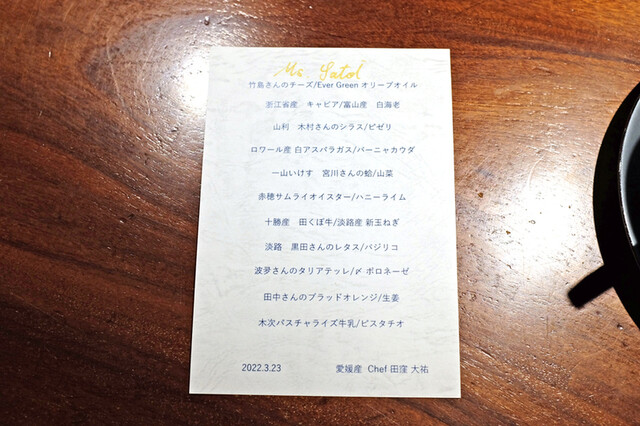 竹島さんのチーズ/Ever Green オリーブオイル
浙江省産 キャビア/富山産 白海老
山利 木村さんのシラス/ピゼリ
ロワール産 白アスパラガス/バーニャカウダ
一山いけす 宮川さんの蛤/山菜
赤穂サムライオイスター/ハニーライム
十勝産 田くぼ牛/淡路産 新玉ねぎ
淡路 黒田さんのレタス/バジリコ
さんのタリアテッレ/〆 ボロネーゼ
田中さんのブラッドオレンジ/生姜
木次パスチャライズ牛乳/ピスタチオ
2022.3.23 愛媛産 Chef 田窪 大祐